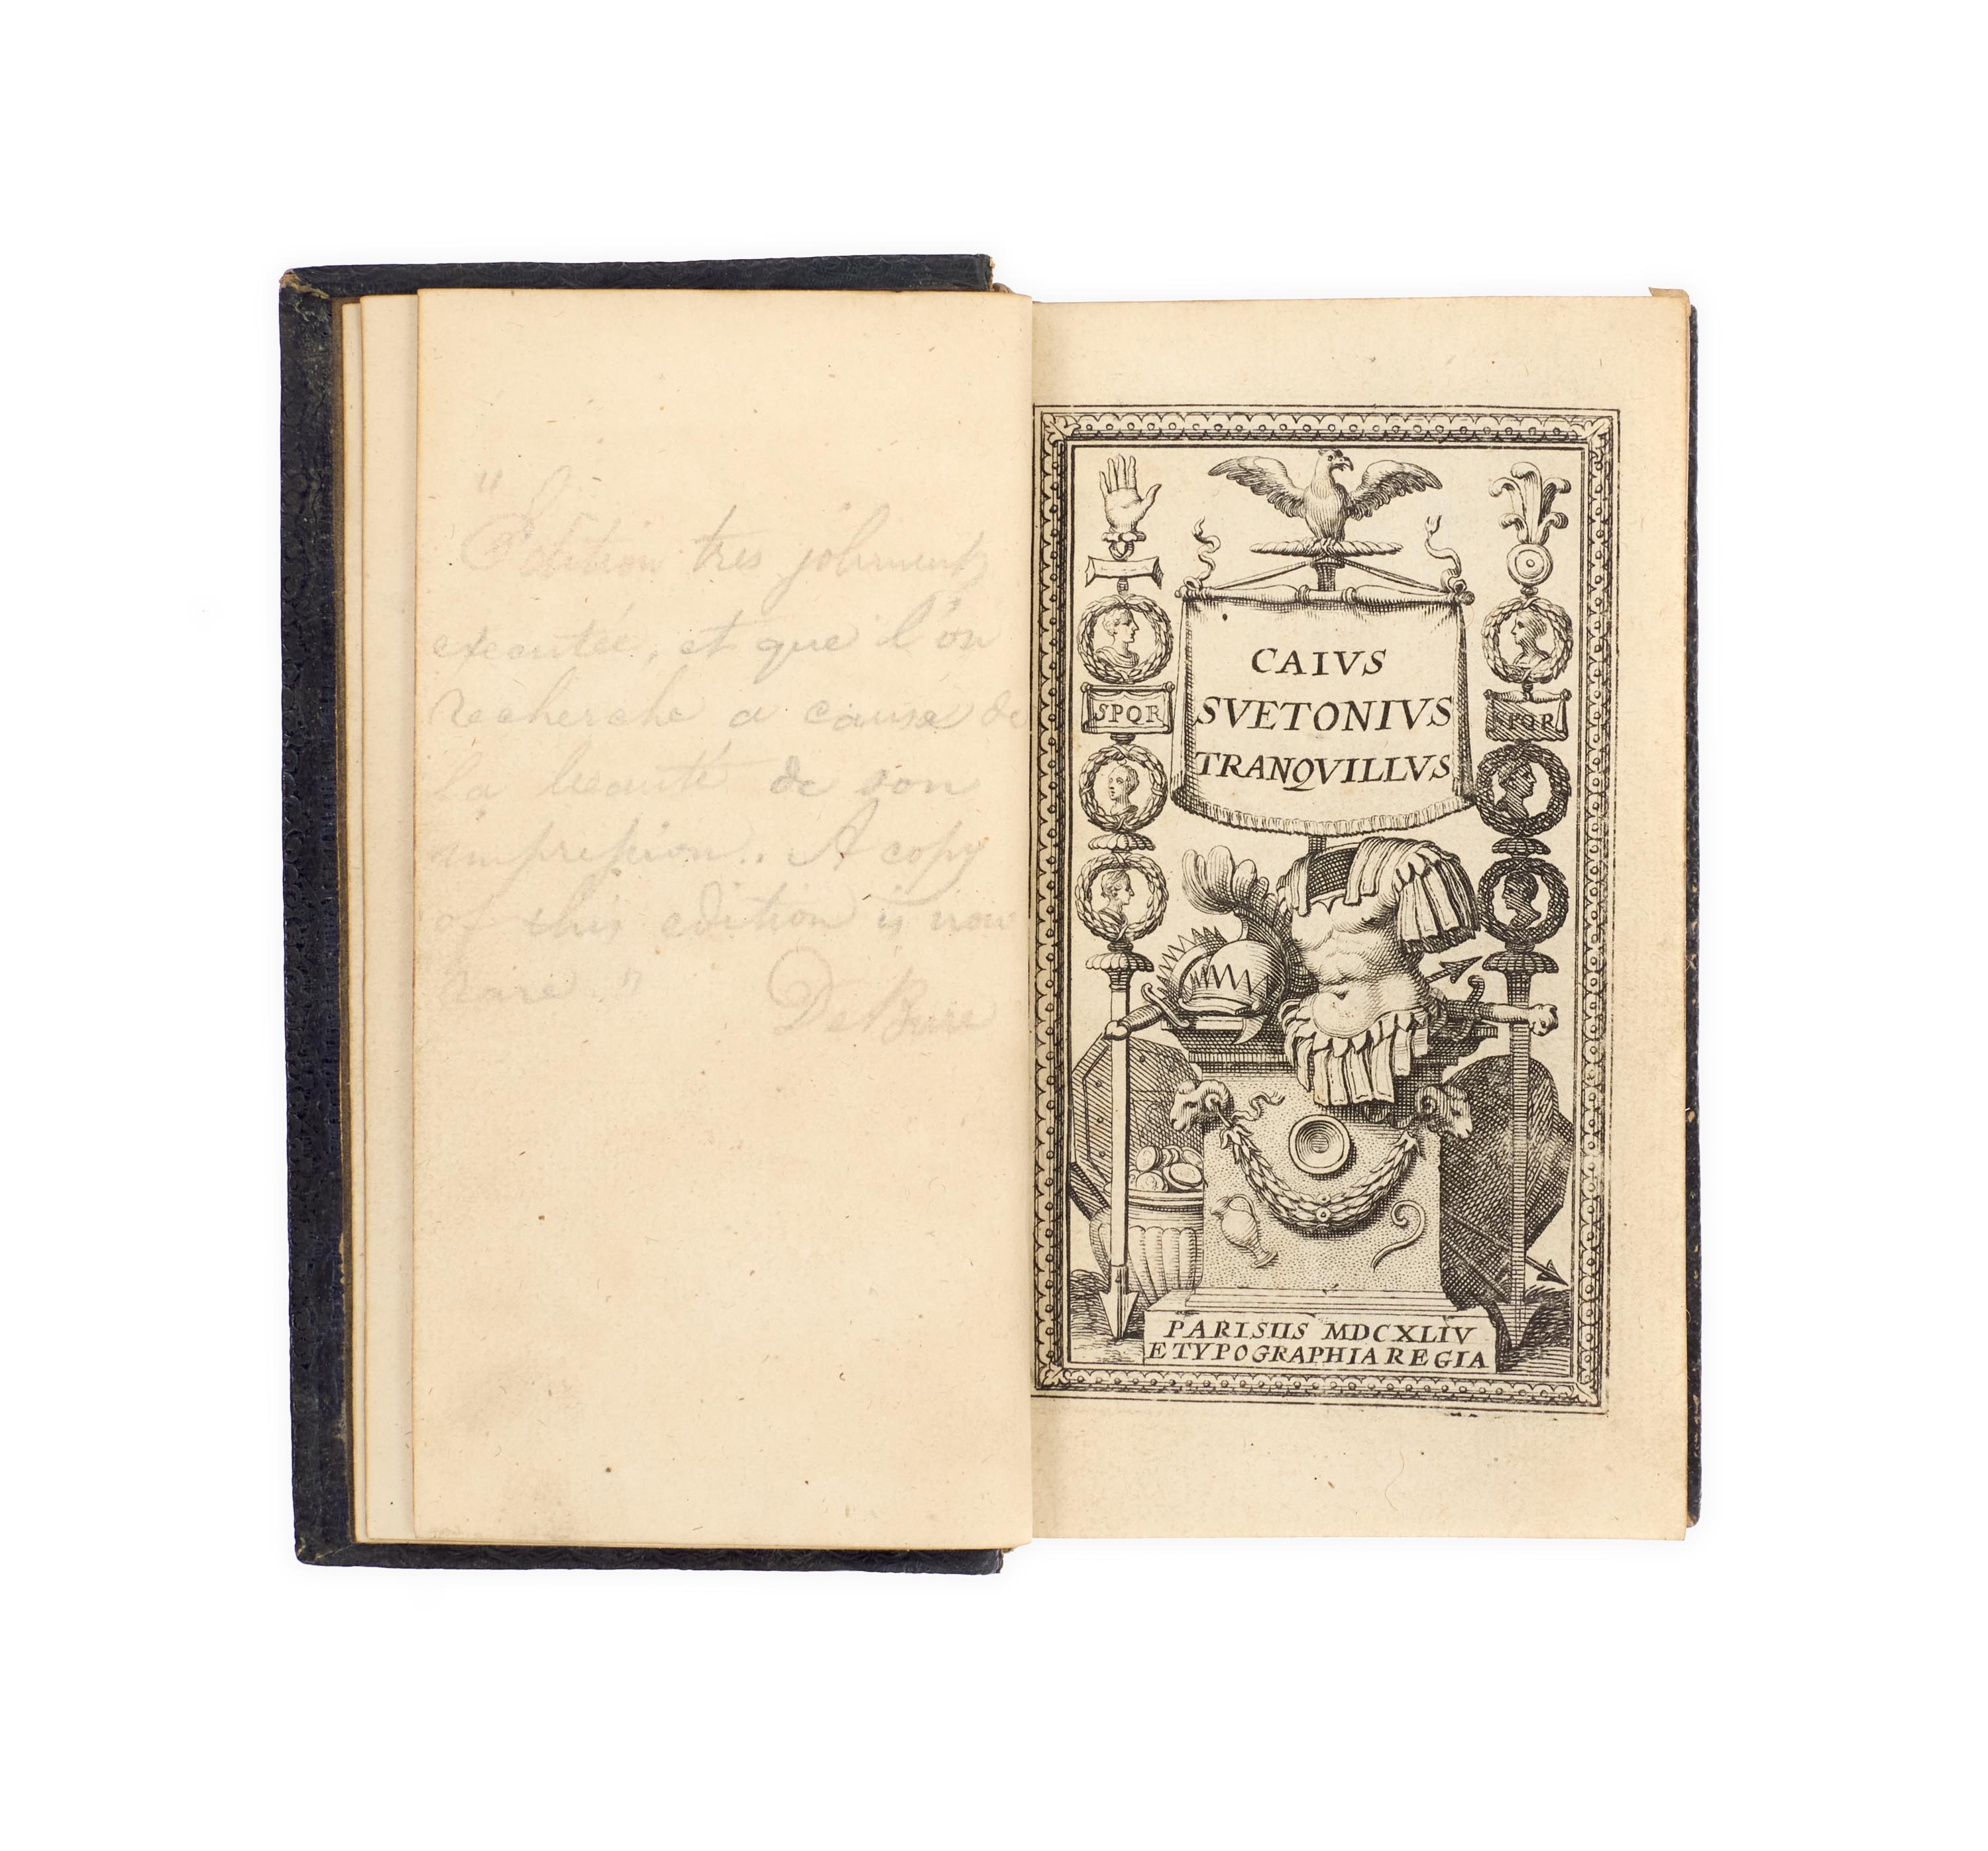 "
Edition tres joliment
executée, et que l'on
recherche a cause de
la beauté de son
impression. A copy
of this edition is now
rare."
De Bure
CAIVS
SVETONIVS
TRANQVILLVS
SPQR
SPQR
PARISIIS MDCXLIV
E TYPOGRAPHIA REGIA